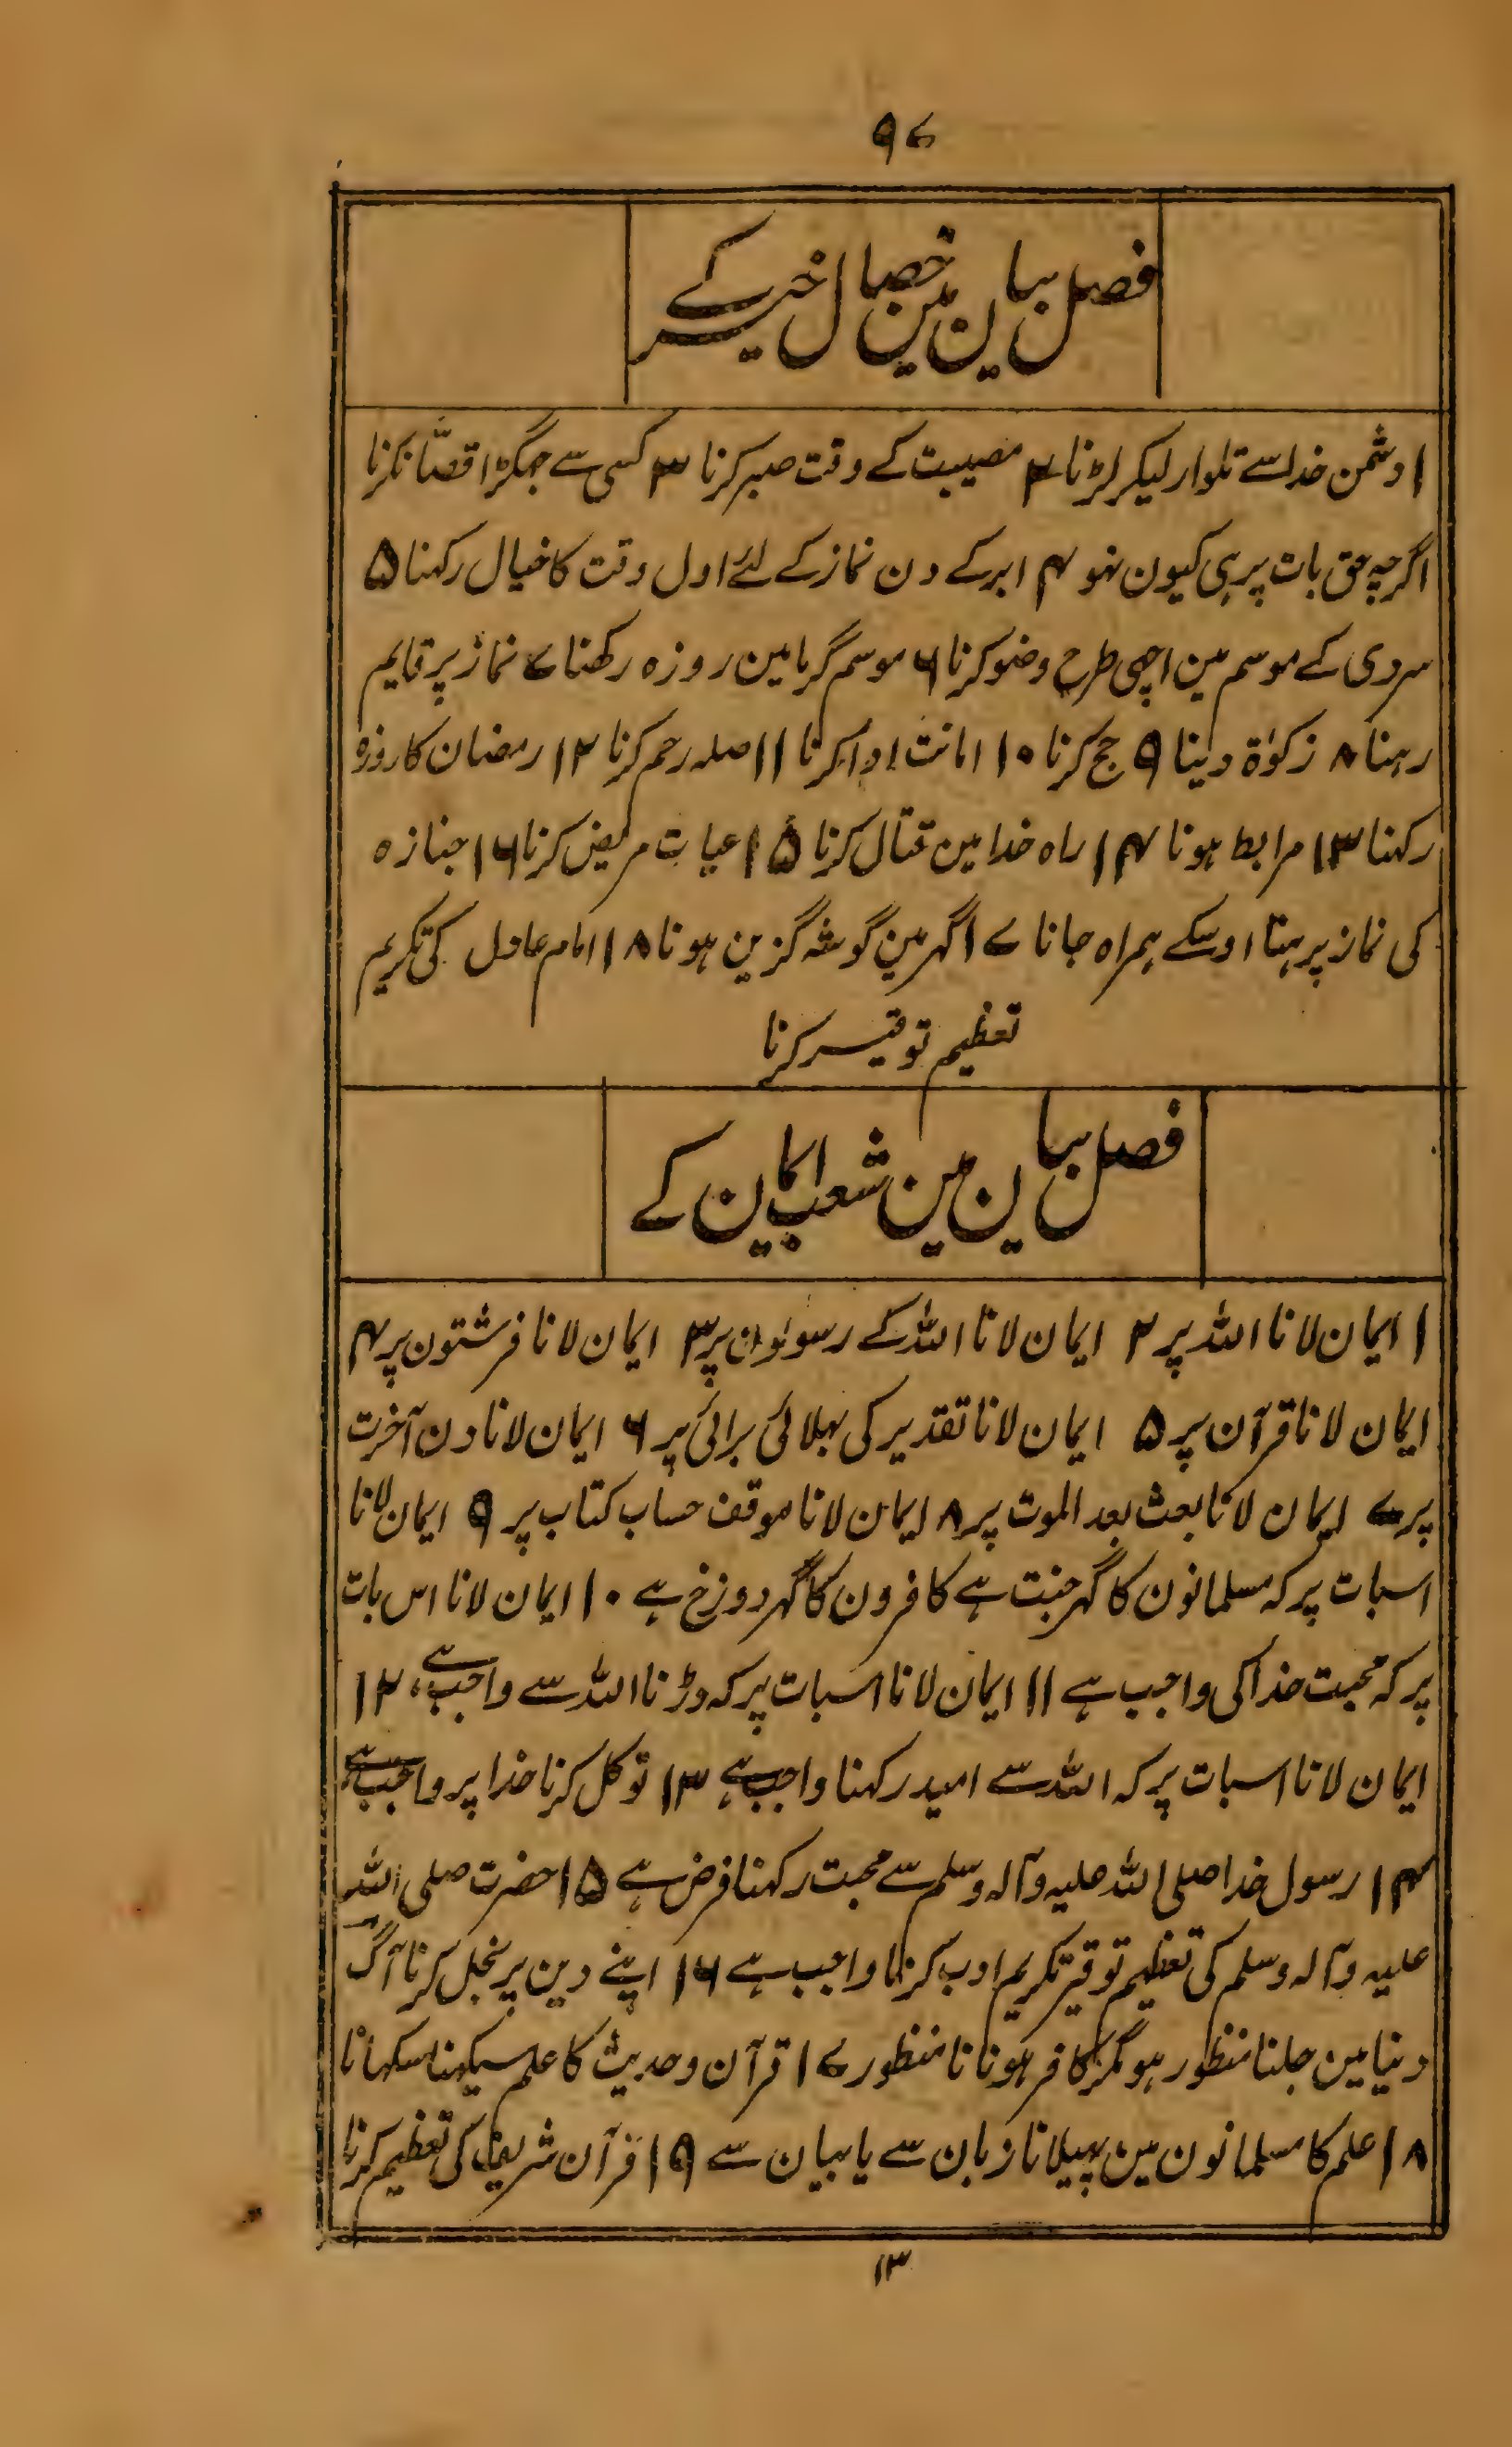 ۹۷
فصل بیان مین خصال خیر کے
۱ دشمن خدا سے تلوار لیکر لڑنا ۲ مصیبت کے وقت صبر کرنا ۳ کسی سے جہگڑا قصّا نکرنا
اگرچہ حق بات پر ہی کیون نہو ۴ ابر کے دن نماز کے لئے اول وقت کا خیال رکہنا ۵
سردی کے موسم مین اچہی طرح وضو کرنا ۶ موسم گرما مین روزہ رکھنا ۷ نماز پر قایم
رہنا ۸ زکوٰۃ دینا ۹ حج کرنا ۱۰ امانت ادا کرنا ۱۱ صلہ رحم کرنا ۱۲ رمضان کا روزہ
رکہنا ۱۳ مرابط ہونا ۱۴ راہ خدا مین قتال کرنا ۱۵ عیادت مریض کرنا ۱۶ جنازہ
کی نماز پرہنا اوسکے ہمراہ جانا ۱۷ گہر مین گوشہ گزین ہونا ۱۸ امام عادل کی تکریم
تعظیم توقیر کرنا
فصل بیان مین شعب ایمان کے
۱ ایمان لانا اللہ پر ۲ ایمان لانا اللہ کے رسولون پر ۳ ایمان لانا فرشتون پر ۴
ایمان لانا قرآن پر ۵ ایمان لانا تقدیر کی بہلائی برائی پر ۶ ایمان لانا دن آخرت
پر ۷ ایمان لانا بعث بعد الموت پر ۸ ایمان لانا موقف حساب کتاب پر ۹ ایمان لانا
اسبات پر کہ مسلمانون کا گہر جنت ہے کافرون کا گہر دوزخ ہے ۱۰ ایمان لانا اس بات
پر کہ محبت خدا کی واجب ہے ۱۱ ایمان لانا اسبات پر کہ ڈرنا اللہ سے واجب ہے ۱۲
ایمان لانا اسبات پر کہ اللہ سے امید رکہنا واجب ہے ۱۳ توکل کرنا خدا پر واجب ہے
۱۴ رسول خدا صلی اللہ علیہ وآلہ وسلم سے محبت رکہنا فرض ہے ۱۵ حضرت صلی اللہ
علیہ وآلہ وسلم کی تعظیم توقیر تکریم ادب کرنا واجب ہے ۱۶ اپنے دین پر بخل کرنا آگ
دنیا مین جلنا منظور ہو مگر کافر ہونا نا منظور ۱۷ قرآن وحدیث کا علم سیکہنا سکہانا
۱۸ علم کا مسلمانون مین پہیلانا زبان سے یا بیان سے ۱۹ قرآن شریف کی تعظیم کرنا
۱۳